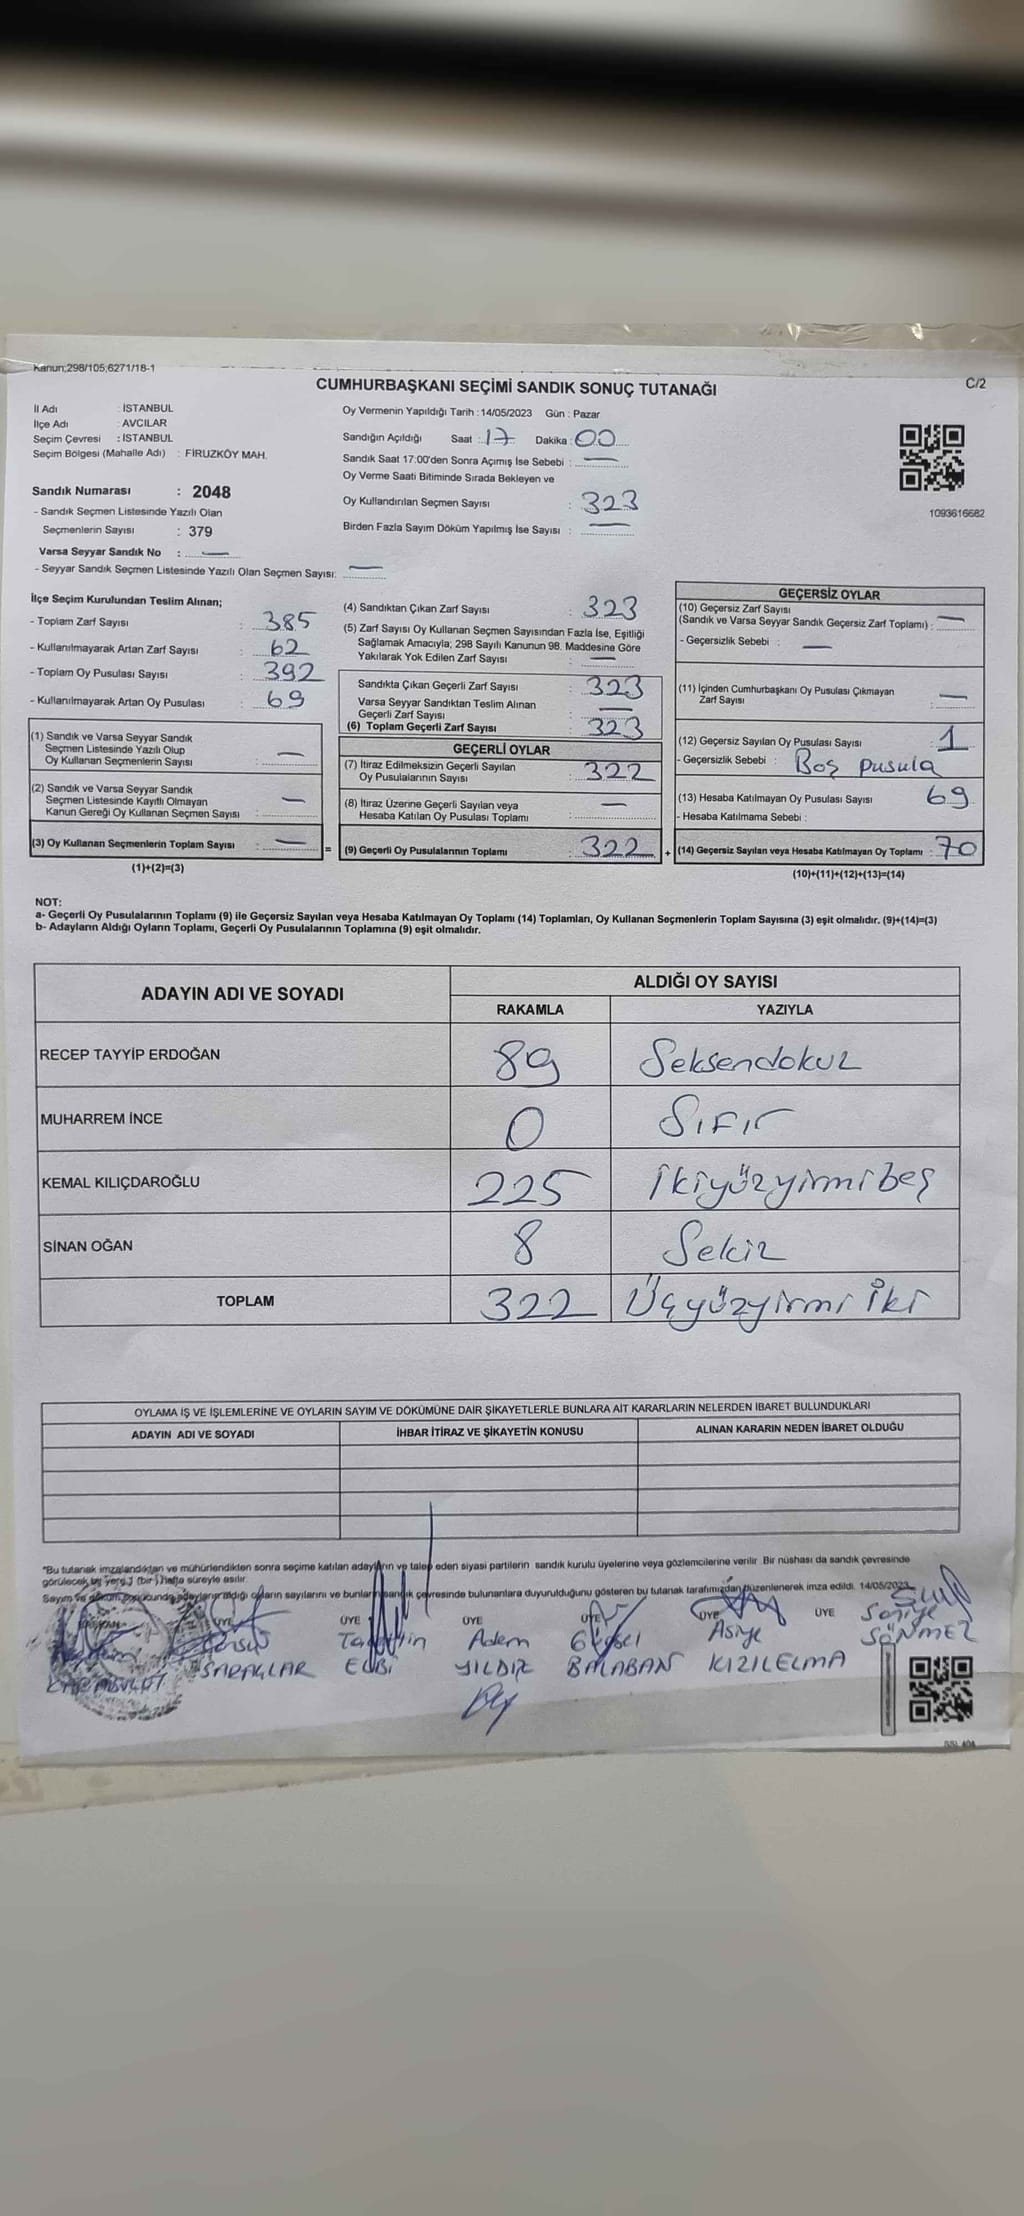 Kanun;298/105;6271/18-1
CUMHURBAŞKANI SEÇİMİ SANDIK SONUÇ TUTANAĞI
C/2
İl Adı : İSTANBUL
İlçe Adı : AVCILAR
Seçim Çevresi : İSTANBUL
Seçim Bölgesi (Mahalle Adı) : FİRUZKÖY MAH.
Sandık Numarası : 2048
- Sandık Seçmen Listesinde Yazılı Olan
Seçmenlerin Sayısı : 379
Varsa Seyyar Sandık No : —
- Seyyar Sandık Seçmen Listesinde Yazılı Olan Seçmen Sayısı: —
Oy Vermenin Yapıldığı Tarih : 14/05/2023 Gün : Pazar
Sandığın Açıldığı Saat : 17 Dakika : 00
Sandık Saat 17:00'den Sonra Açımış İse Sebebi : —
Oy Verme Saati Bitiminde Sırada Bekleyen ve
Oy Kullandırılan Seçmen Sayısı : 323
Birden Fazla Sayım Döküm Yapılmış İse Sayısı : —
1093616682
İlçe Seçim Kurulundan Teslim Alınan;
- Toplam Zarf Sayısı : 385
- Kullanılmayarak Artan Zarf Sayısı : 62
- Toplam Oy Pusulası Sayısı : 392
- Kullanılmayarak Artan Oy Pusulası : 69
(1) Sandık ve Varsa Seyyar Sandık
Seçmen Listesinde Yazılı Olup
Oy Kullanan Seçmenlerin Sayısı : —
(2) Sandık ve Varsa Seyyar Sandık
Seçmen Listesinde Kayıtlı Olmayan
Kanun Gereği Oy Kullanan Seçmen Sayısı : —
(3) Oy Kullanan Seçmenlerin Toplam Sayısı : — =
(1)+(2)=(3)
(4) Sandıktan Çıkan Zarf Sayısı : 323
(5) Zarf Sayısı Oy Kullanan Seçmen Sayısından Fazla İse, Eşitliği
Sağlamak Amacıyla; 298 Sayılı Kanunun 98. Maddesine Göre
Yakılarak Yok Edilen Zarf Sayısı : —
Sandıkta Çıkan Geçerli Zarf Sayısı : 323
Varsa Seyyar Sandıktan Teslim Alınan
Geçerli Zarf Sayısı : —
(6) Toplam Geçerli Zarf Sayısı : 323
GEÇERLİ OYLAR
(7) İtiraz Edilmeksizin Geçerli Sayılan
Oy Pusulalarının Sayısı : 322
(8) İtiraz Üzerine Geçerli Sayılan veya
Hesaba Katılan Oy Pusulası Toplamı : —
(9) Geçerli Oy Pusulalarının Toplamı : 322 +
GEÇERSİZ OYLAR
(10) Geçersiz Zarf Sayısı
(Sandık ve Varsa Seyyar Sandık Geçersiz Zarf Toplamı) : —
- Geçersizlik Sebebi : —
(11) İçinden Cumhurbaşkanı Oy Pusulası Çıkmayan
Zarf Sayısı : —
(12) Geçersiz Sayılan Oy Pusulası Sayısı : 1
- Geçersizlik Sebebi : Boş pusula
(13) Hesaba Katılmayan Oy Pusulası Sayısı 69
- Hesaba Katılmama Sebebi :
(14) Geçersiz Sayılan veya Hesaba Katılmayan Oy Toplamı : 70
(10)+(11)+(12)+(13)=(14)
NOT:
a- Geçerli Oy Pusulalarının Toplamı (9) ile Geçersiz Sayılan veya Hesaba Katılmayan Oy Toplamı (14) Toplamları, Oy Kullanan Seçmenlerin Toplam Sayısına (3) eşit olmalıdır. (9)+(14)=(3)
b- Adayların Aldığı Oyların Toplamı, Geçerli Oy Pusulalarının Toplamına (9) eşit olmalıdır.
ADAYIN ADI VE SOYADI
ALDIĞI OY SAYISI
RAKAMLA YAZIYLA
RECEP TAYYİP ERDOĞAN 89 Seksendokuz
MUHARREM İNCE 0 Sıfır
KEMAL KILIÇDAROĞLU 225 İkiyüzyirmibeş
SİNAN OĞAN 8 Sekiz
TOPLAM 322 Üçyüzyirmi iki
OYLAMA İŞ VE İŞLEMLERİNE VE OYLARIN SAYIM VE DÖKÜMÜNE DAİR ŞİKAYETLERLE BUNLARA AİT KARARLARIN NELERDEN İBARET BULUNDUKLARI
ADAYIN ADI VE SOYADI İHBAR İTİRAZ VE ŞİKAYETİN KONUSU ALINAN KARARIN NEDEN İBARET OLDUĞU
*Bu tutanak imzalandıktan ve mühürlendikten sonra seçime katılan adayların ve talep eden siyasi partilerin sandık kurulu üyelerine veya gözlemcilerine verilir. Bir nüshası da sandık çevresinde
görülecek bir yere 1 (bir) hafta süreyle asılır.
Sayım ve döküm sonucunda adayların aldığı oyların sayılarını ve bunların sandık çevresinde bulunanlara duyurulduğunu gösteren bu tutanak tarafımızdan düzenlenerek imza edildi. 14/05/2023
ÜYE ÜYE ÜYE ÜYE ÜYE ÜYE
Adem Asiye Soniye
SARAÇLAR YILDIZ BALABAN KIZILELMA SÖNMEZ